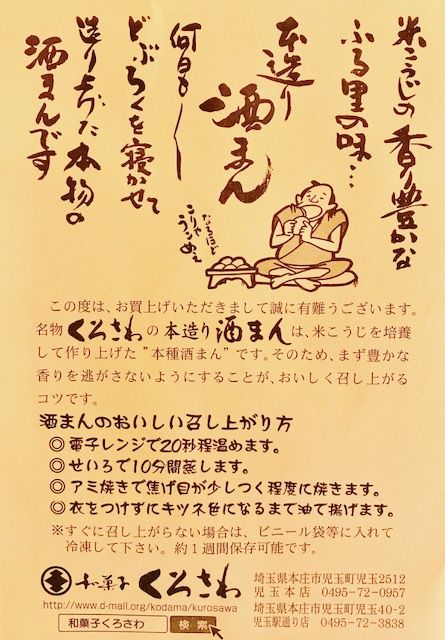 米こうじの香り豊かな
ふる里の味…
本造り
酒まん
何日も
どぶろくを寝かせて
造りあげた本物の
酒まんです
なるほど
こりゃ
うンめぇ
この度は、お買上げいただきまして誠に有難うございます。
名物くろさわの本造り酒まんは、米こうじを培養
して作り上げた"本種酒まん"です。そのため、まず豊かな
香りを逃がさないようにすることが、おいしく召し上がる
コツです。
酒まんのおいしい召し上がり方
◎電子レンジで20秒程温めます。
◎せいろで10分間蒸します。
◎アミ焼きで焦げ目が少しつく程度に焼きます。
◎衣をつけずにキツネ色になるまで油で揚げます。
※すぐに召し上がらない場合は、ビニール袋等に入れて
冷凍して下さい。約1週間保存可能です。
和菓子くろさわ
http://www.d-mall.org/kodama/kurosawa
和菓子くろさわ 検索
埼玉県本庄市児玉町児玉2512
児玉本店 0495-72-0957
埼玉県本庄市児玉町児玉40-2
児玉駅通り店 0495-72-3838